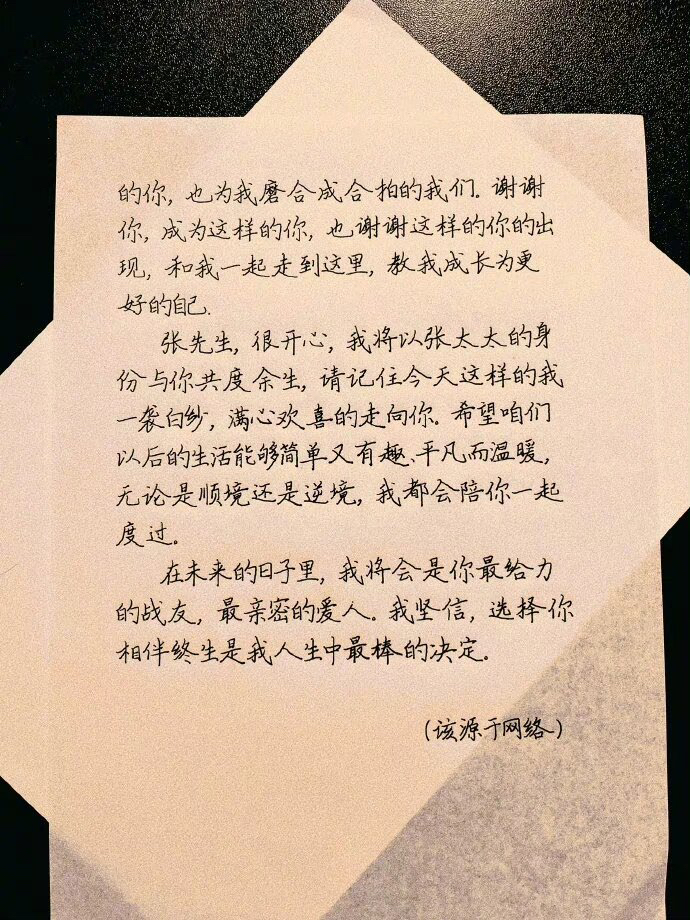 的你，也为我磨合成合拍的我们．谢谢
你，成为这样的你，也谢谢这样的你的出
现，和我一起走到这里，教我成长为更
好的自己．
张先生，很开心，我将以张太太的身
份与你共度余生，请记住今天这样的我
一袭白纱，满心欢喜的走向你．希望咱们
以后的生活能够简单又有趣、平凡而温暖，
无论是顺境还是逆境，我都会陪你一起
度过。
在未来的日子里，我将会是你最给力
的战友，最亲密的爱人。我坚信，选择你
相伴终生是我人生中最棒的决定。
（该源于网络）